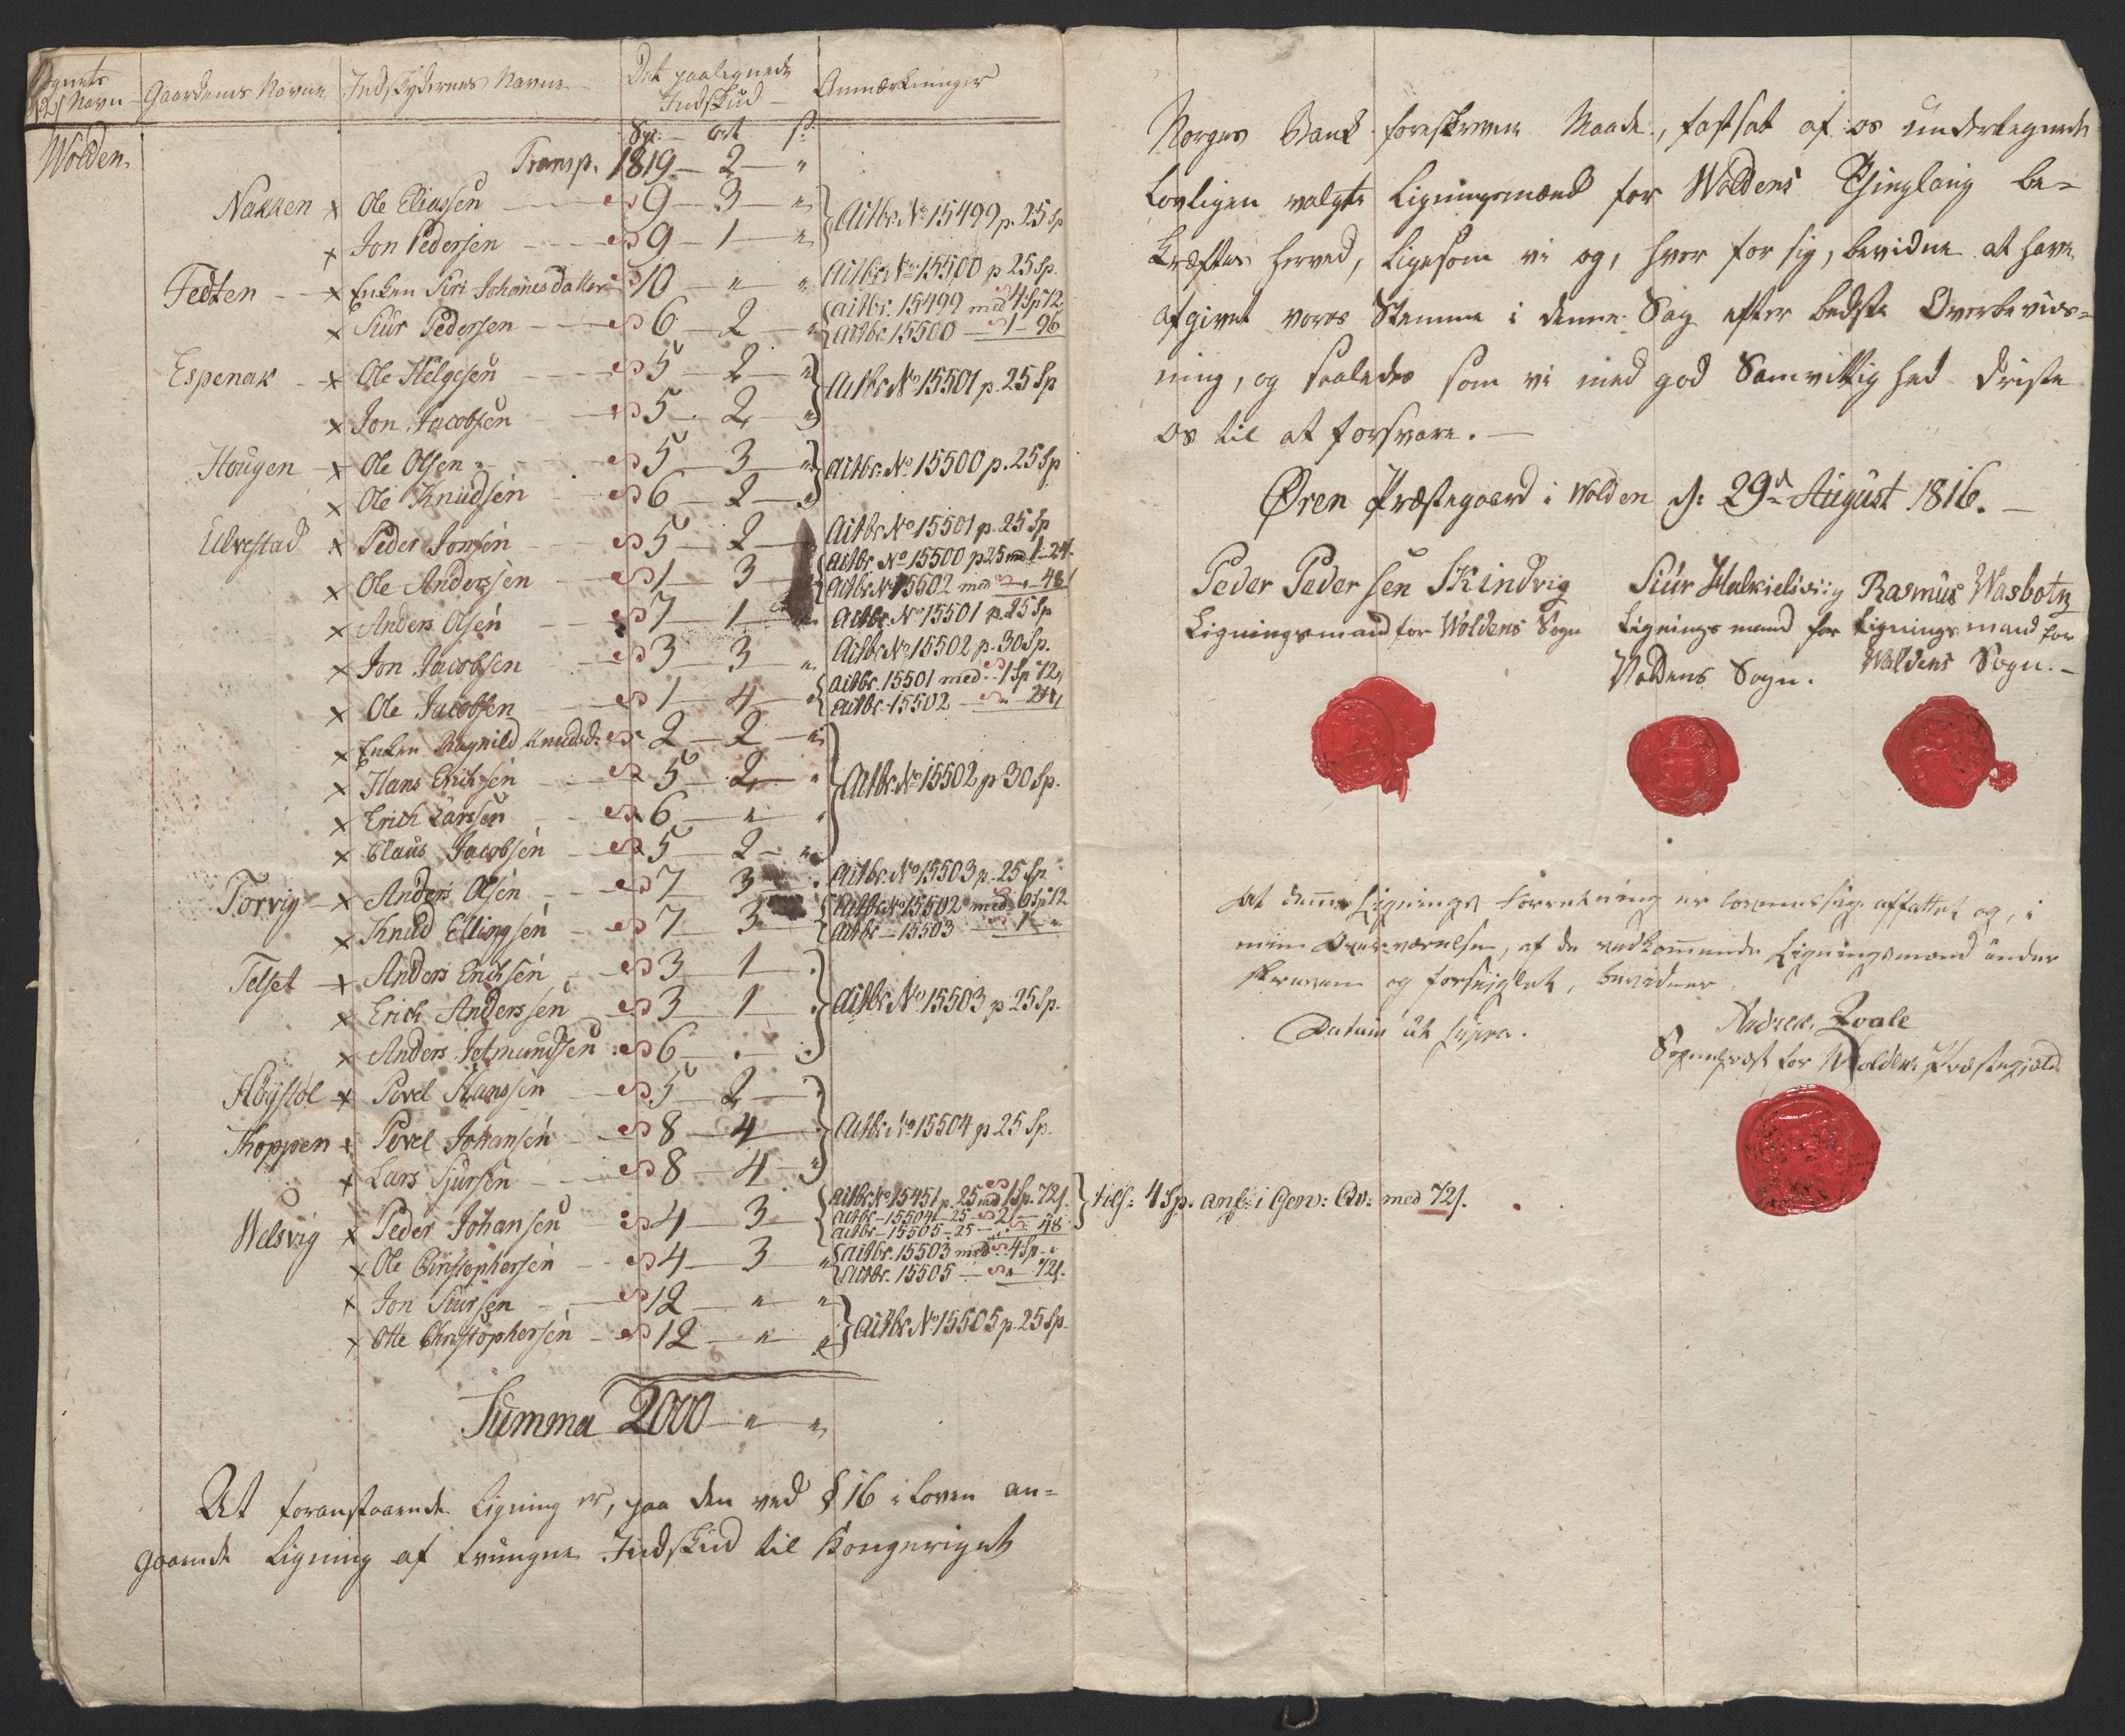 Sognets Navn Gaardens Navne Indskydernes Navne Det paalignede Indskud Anmærkninger
Spd. ort s
Wolden
Transp. 1819 - 2 - "
Nakken x Ole Eliassen 9 - 3 - "
x Jon Pedersen 9 - 1 - " } Actbr. No 15499 p. 25 Sp
Fedten x Enken Siri Johannesdatter 10 - " - " Actbr. No 15500 p 25 Sp.
x Siur Pedersen 6 - 2 - " { Actbr. 15499 med 4 Sp 72
Actbr. 15500 - 1 - 96
Espenak x Ole Helgesen 5 - 2 - "
x Jon Jacobsen 5 - 2 - " } Actbr. No 15501 p. 25 Sp
Hougen x Ole Olsen 5 - 3 - "
x Ole Knudsen 6 - 2 - " } Actbr. No 15500 p. 25 Sp
Ulvestad x Peder Jonsen 5 - 2 - Actbr. No 15501 p. 25 Sp
x Ole Anderssen 1 - 3 { Actbr. No 15500 p 25 med 1 - 24
Actbr. No 15502 med " - 48
x Anders Olsen 7 - 1 - Actbr. No 15501 p. 25 Sp
x Jon Jacobsen 3 - 3 - " Actbr. No 15502 p. 30 Sp.
x Ole Jacobsen 1 - 4 - " { Actbr. 15501 med 1 Sp 72
Actbr. 15502 - " 24
x Enken Ragnild Knudsd: 2 - 2 - "
x Hans Erichsen 5 - 2 - "
x Erich Larssen 6 - " - " } Actbr. No 15502 p 30 Sp.
x Claus Jacobsen 5 - 2 - "
Torvig x Anders Olsen 7 - 3 - Actbr. No 15503 p. 25 Sp
x Knud Ellingsen 7 - 3 { Actbr. No 15502 med 6 Sp 72
Actbr. - 15503 - 1 - "
Telset x Anders Erichsen 3 - 1
x Erich Anderssen 3 - 1 } Actbr. No 15503 p 25 Sp.
x Anders Jetmundsen 6 - .
Høystøl x Povel Hanssen 5 - 2
Koppen x Povel Johansen 8 - 4 } Actbr. No 15504 p 25 Sp.
x Lars Sjursen 8 - 4 - "
Welsvig x Peder Johansen 4 - 3 { Actbr. No 15451 p. 25 med 1 Sp. 72 } tils: 4 Sp. anf: i Gen: Qv: med 72
Actbr. - 15504 - 25 - 2 -
Actbr. - 15505 - 25 - " - 48
x Ole Christophersen 4 - 3 - " { Actbr. 15503 med 4 Sp - "
Actbr. 15505 - " - 72
x Jon Siursen 12 - " - "
x Otte Christophersen 12 - " - " } Actbr. No 15505 p. 25 Sp.
Summa 2000 - " - "
At foranstaaende Ligning er, paa den ved § 16 i Loven an=
gaaende Ligning af tvungne Indskud til Kongeriget
Norges Bank foreskrevne Maade, fastsat af os undertegnede
lovligen valgte Ligningsmænd for Woldens Thinglaug be=
kræftes herved, ligesom vi og, hver for sig, bevidne at have
afgivet vores Stemme i denne Sag efter bedste Overbeviis=
ning, og saaledes som vi med god Samvittighed driste
os til at forsvare. -
Øren Præstegaard i Wolden d: 29d August 1816. -
Peder Pedersen Skindvig Siur Halkielsviig Rasmus Wasbotn
Ligningsmand for Woldens Sogn Lignings mand for Ligningsmand for
Woldens Sogn. Woldens Sogn. -
At denne Lignings Forretning er lovmæssig affattet og, i
min Overværelse, af de vedkommende Ligningsmænd under
skreven og forseiglet, bevidner
Datum ut supra.
Andreas Qvale
Sognepræst for Woldens Præstegjæld